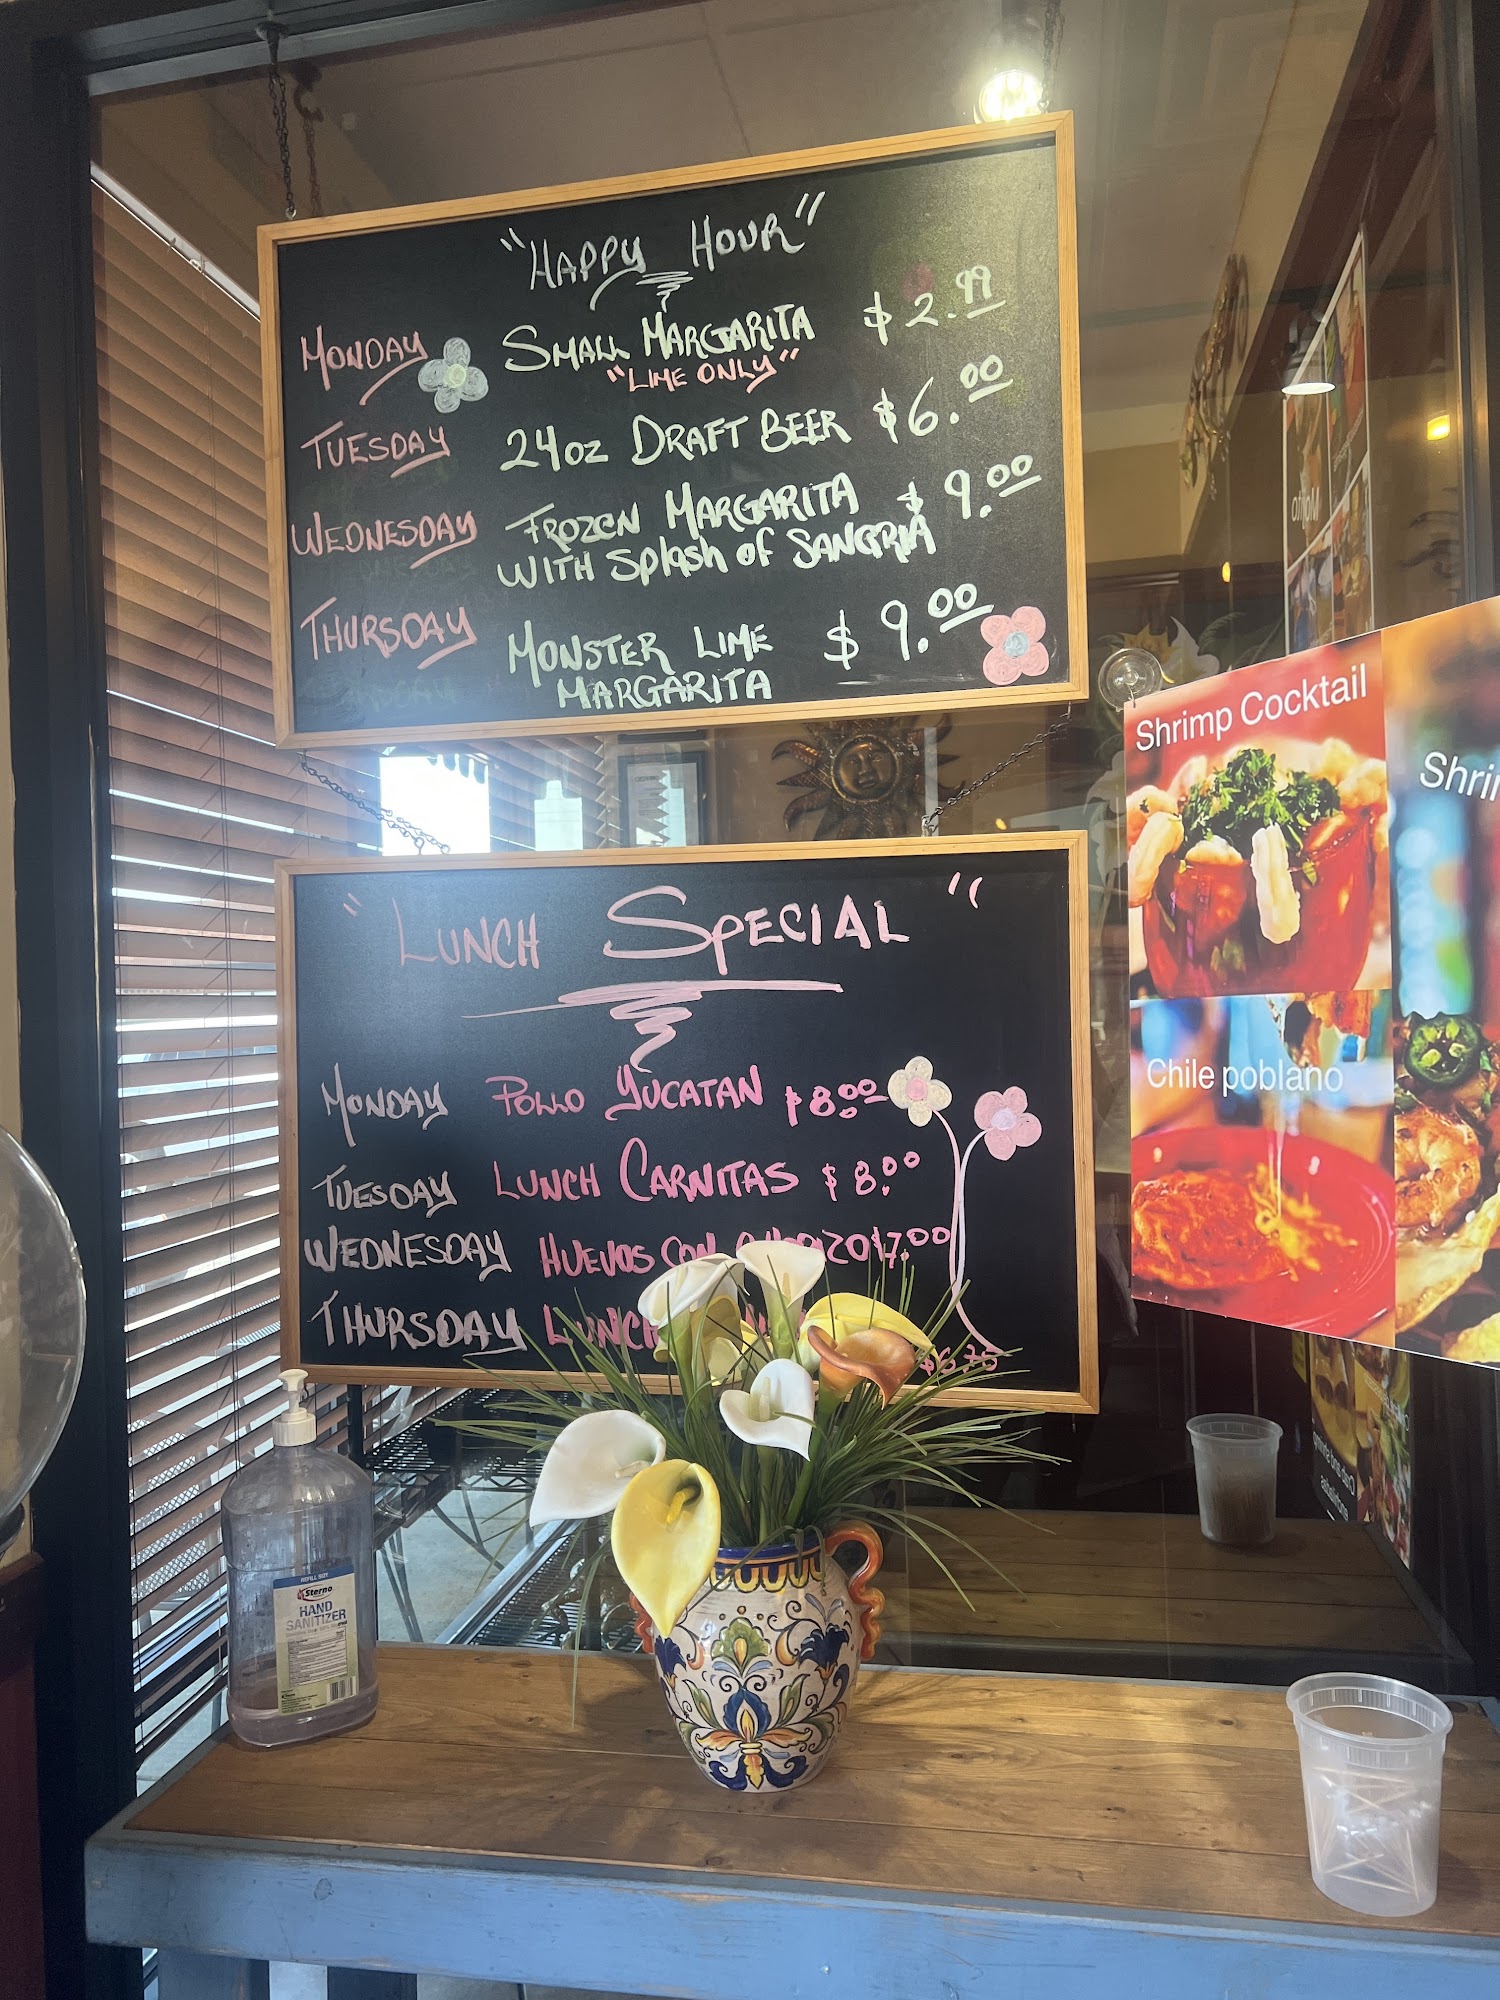 "HAPPY HOUR"
MONDAY SMALL MARGARITA $2.99
"LIME ONLY"
TUESDAY 24oz DRAFT BEER $6.00
WEDNESDAY FROZEN MARGARITA $9.00
WITH Splash of SANGRIA
THURSDAY MONSTER LIME $9.00
MARGARITA
"LUNCH SPECIAL"
MONDAY POLLO YUCATAN $8.00
TUESDAY LUNCH CARNITAS $8.00
WEDNESDAY HUEVOS CON $7.00
THURSDAY LUNCH
$6.75
Shrimp Cocktail
Chile poblano
REFILL SIZE
Sterno
HAND
SANITIZER